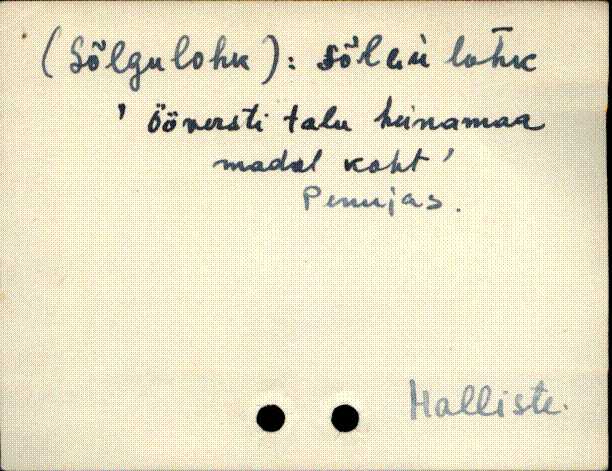 (Sõlgulohk): sõlɢu̇ lohk
' Ööversti talu heinamaa
madal koht '
Penujas.
Halliste.